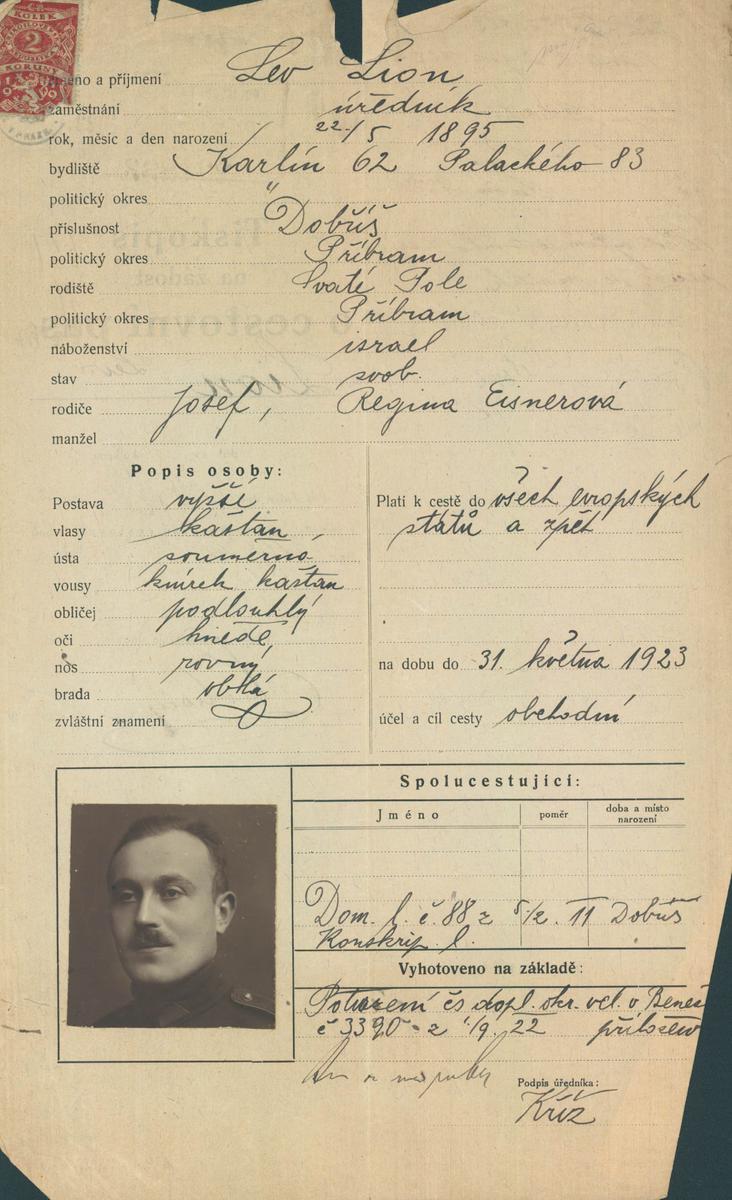 KOLEK
2
KORUNY
jméno a příjmení Lev Lion
zaměstnání úředník
rok, měsíc a den narození 22/5 1895
bydliště Karlín 62 Palackého 83
politický okres "
příslušnost Dobříš
politický okres Příbram
rodiště Svaté Pole
politický okres Příbram
náboženství israel
stav svob.
rodiče Josef, Regina Eisnerová
manžel
Popis osoby:
Postava vyšší
vlasy kaštan
ústa souměrná
vousy knírek kaštan
obličej podlouhlý
oči hnědé
nos rovný
brada oblá
zvláštní znamení
Platí k cestě do všech evropských
států a zpět
na dobu do 31. května 1923
účel a cíl cesty obchodní
Spolucestující:
Jméno poměr doba a místo narození
Dom. l. č. 88 z 5/2. 11 Dobříš
Konskrip. l.
Vyhotoveno na základě:
Potvrzení čs dopl. okr. vel. v Beneš
č 3390 z 1/9. 22 přiložen
Podpis úředníka:
Kříž